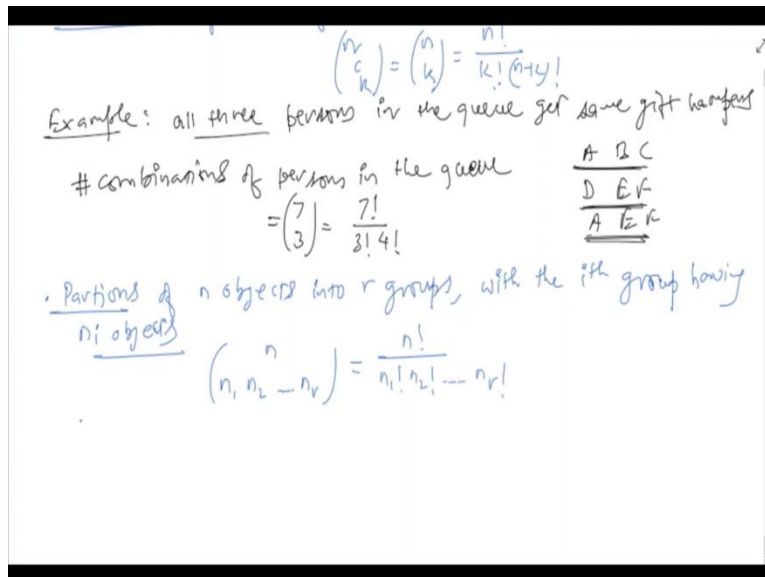 (n c k) = (n k) = n! / k! (n-k)!
Example: all three persons in the queue get same gift hampers
A B C
# combinations of persons in the queue
D E F
= (7 3) = 7! / 3! 4!
A E F
. Partions of n objects into r groups, with the ith group having
ni objects
(n n1 n2 --- nr) = n! / n1! n2! --- nr!